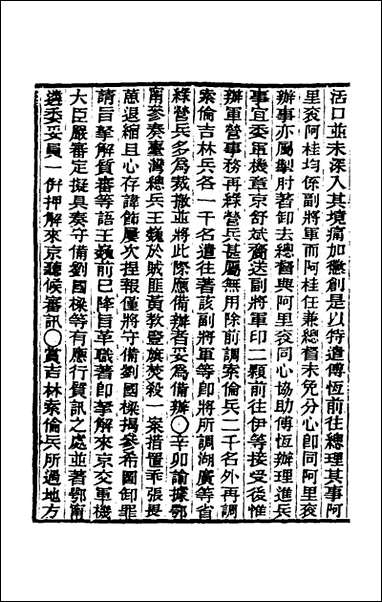 活口並未深入其境痛加懲創是以特遣傅恆前往總理其事阿
里衮阿桂均係副將軍而阿桂任兼總督未免分心卽同阿里衮
辦事亦屬掣肘著卸去總督與阿里衮同心協助傅恆辦理進兵
事宜委軍機章京舒斌齎送副將軍印二顆前往伊等接受後惟
辦軍營事務再綠營兵甚屬無用除前調索倫兵二千名外再調
索倫吉林兵各一千名遣往著該副將軍等卽將所調湖廣等省
綠營兵多為裁撤並將此際應備辦者妥為備辦○辛卯諭據鄂
甯參奏臺灣總兵王巍於賊匪黃教豎旗焚殺一案措置乖張畏
葸退縮且心存諱飾屢次捏報僅將守備劉國樑揭參希圖卸罪
請旨拏解質審等語王巍前已降旨革職著卽拏解來京交軍機
大臣嚴審定擬具奏守備劉國樑等有應行質訊之處並著鄂甯
遴委妥員一併押解來京聽候審訊○賞吉林索倫兵所過地方